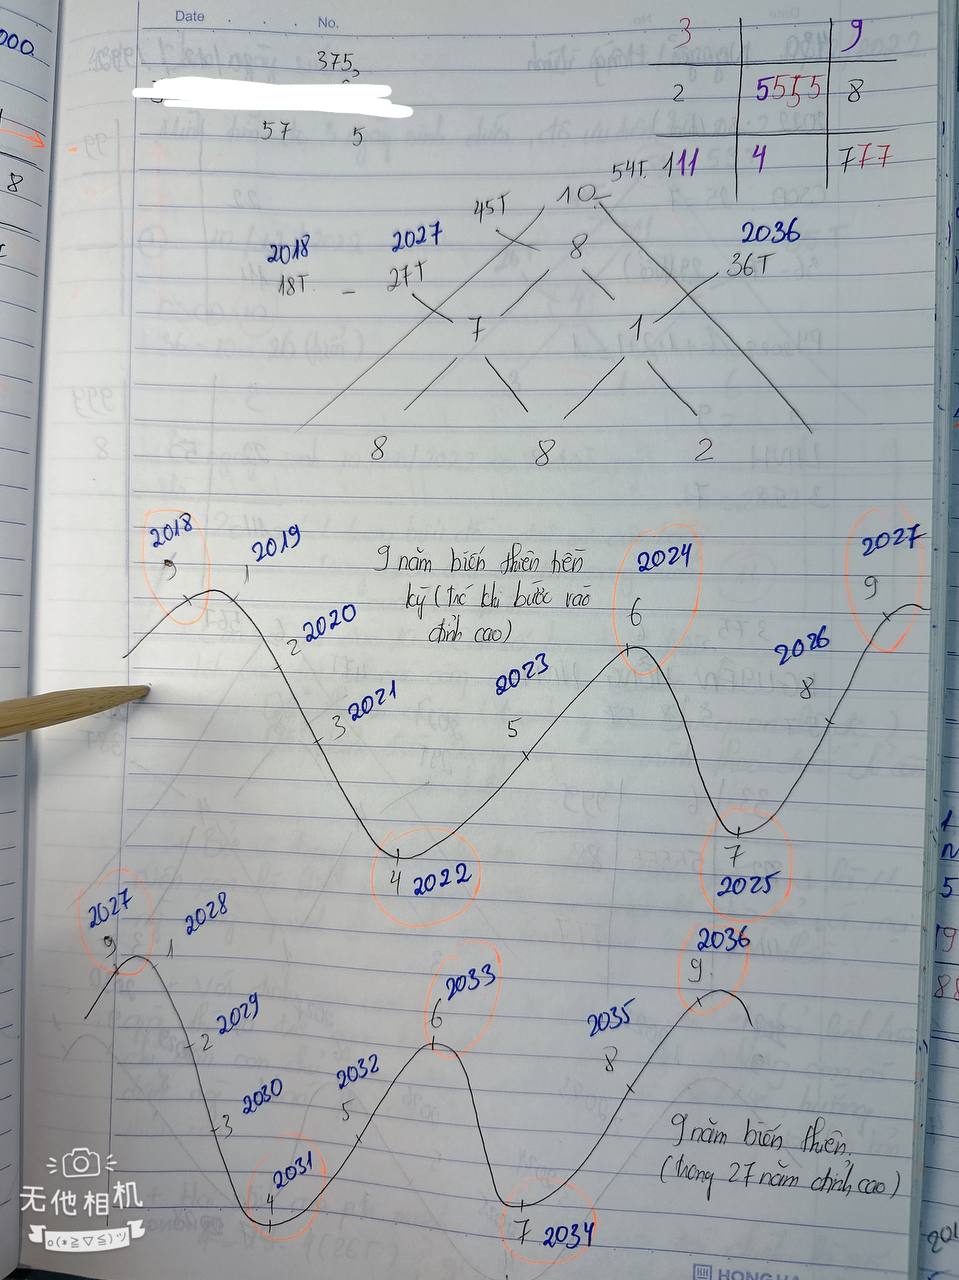 Date
No.
375
3 9
2 5555 8
57 5
111 4 777
54T.
10
45T
2018 2027 8 2036
18T. - 27T 36T
7 1
8 8 2
2018 2019 9 năm biến thiên bền 2024 2027
9 1 kỳ (trc khi bước vào 6 9
2 2020 đỉnh cao)
2026
2023 8
3 2021
5
4 2022
7
2025
2027 2028
9 1
2036
9
2033
6
2 2029
2035
8
2032
5
2030
3
9 năm biến thiên.
(trong 27 năm đỉnh cao)
2031
4
7 2034
无他相机
o(*≧▽≦)ツ